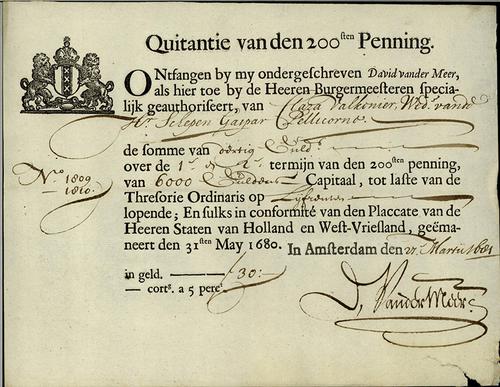 Quitantie van den 200sten Penning.
ONtfangen by my ondergeschreven David vander Meer,
als hier toe by de Heeren Burgermeesteren specia-
lijk geauthoriseert, van Clara Valkenier, Wed. vande
Hr. Schepen Gaspar Pellicorne.
de somme van dertig Guld:
over de 1e. & 2e. termijn van den 200sten penning,
No. 1809
1810.
van 6000 Guldens Capitaal, tot laste van de
Thresorie Ordinaris op Lyfrenten
lopende; En sulks in conformité van den Placcate van de
Heeren Staten van Holland en West-Vriesland, geëma-
neert den 31sten May 1680. In Amsterdam den 27. Martii 1681
in geld. 30:-
cortt. a 5 percт.
D. Vander Meer